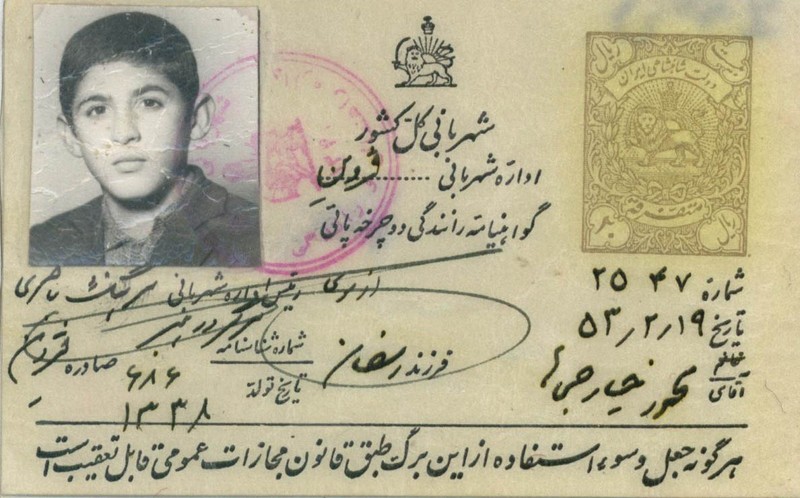 شهربانی کل کشور
اداره شهربانی ........ قزوین
گواهینامه رانندگی دوچرخه پائی
دولت شاهنشاهی ایران
ریال
متفرقه
ریال
شماره ۲۵۴۷
تاریخ ۵۳/۲/۱۹
خانم
آقای محمود خیارجیها
فرزند رمضان
شماره شناسنامه ۶۸۶ صادره قزوین
تاریخ تولد ۱۳۳۸
از سوی رئیس اداره شهربانی
هرگونه جعل و سوء استفاده از این برگ طبق قانون مجازات عمومی قابل تعقیب است